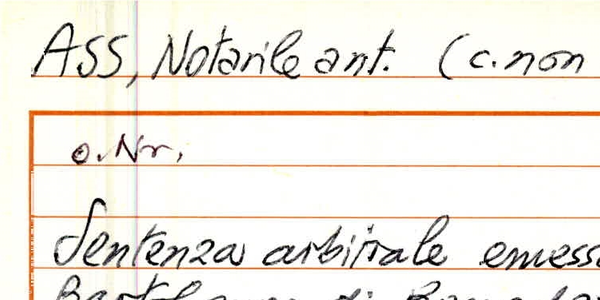 ASS, Notarile ant. (c. non
o. Nr.
Sentenza arbitrale emess